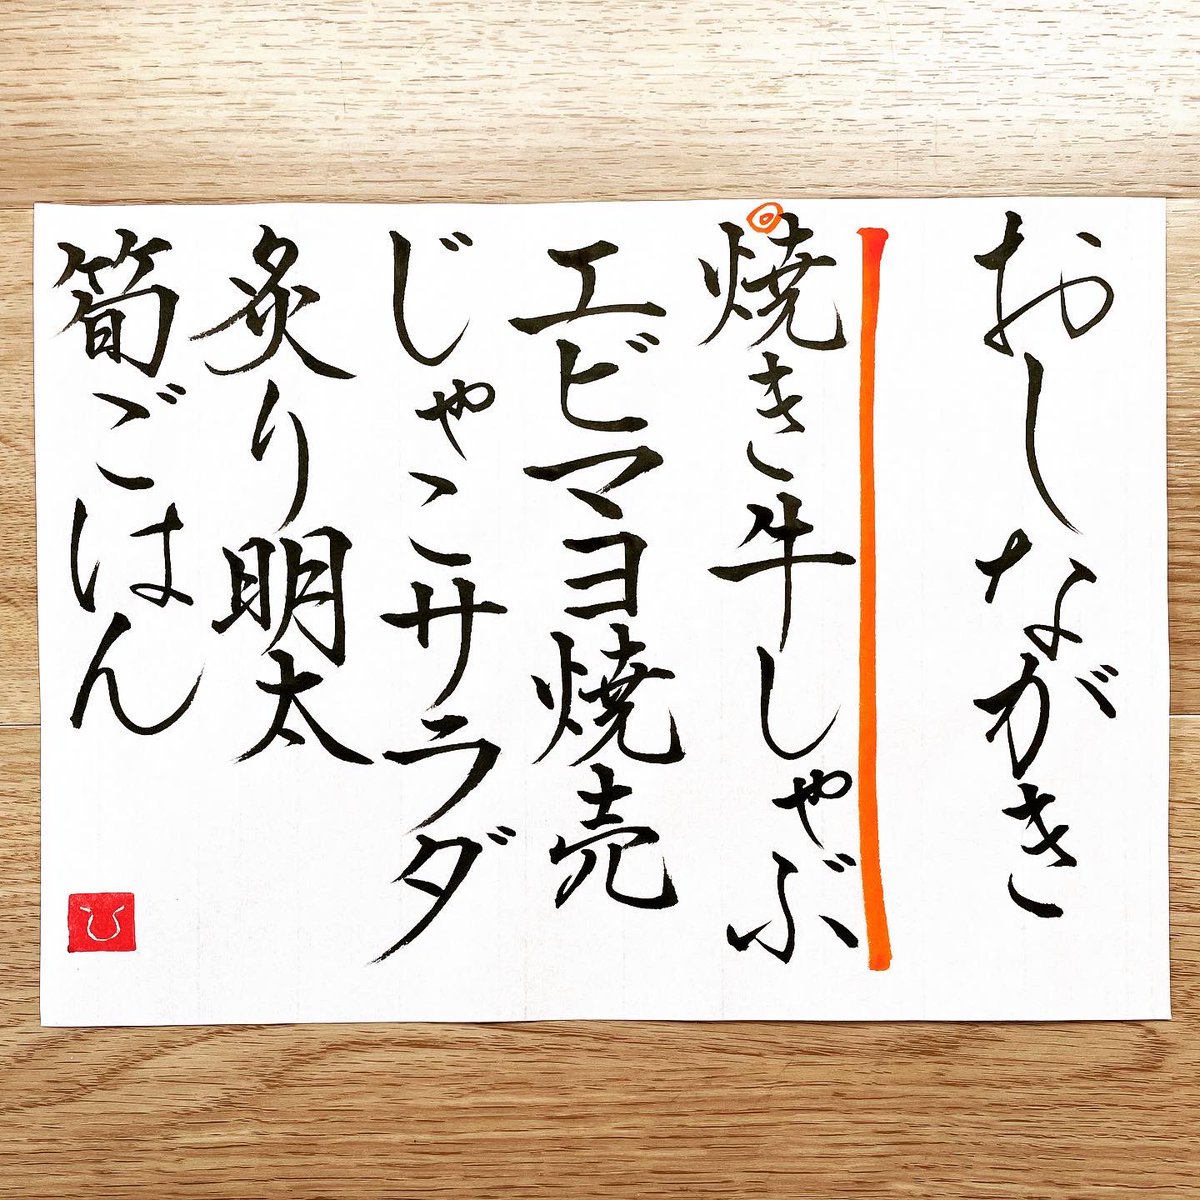 おしながき
焼き牛しゃぶ
エビマヨ焼売
じゃこサラダ
炙り明太
筍ごはん
ひ